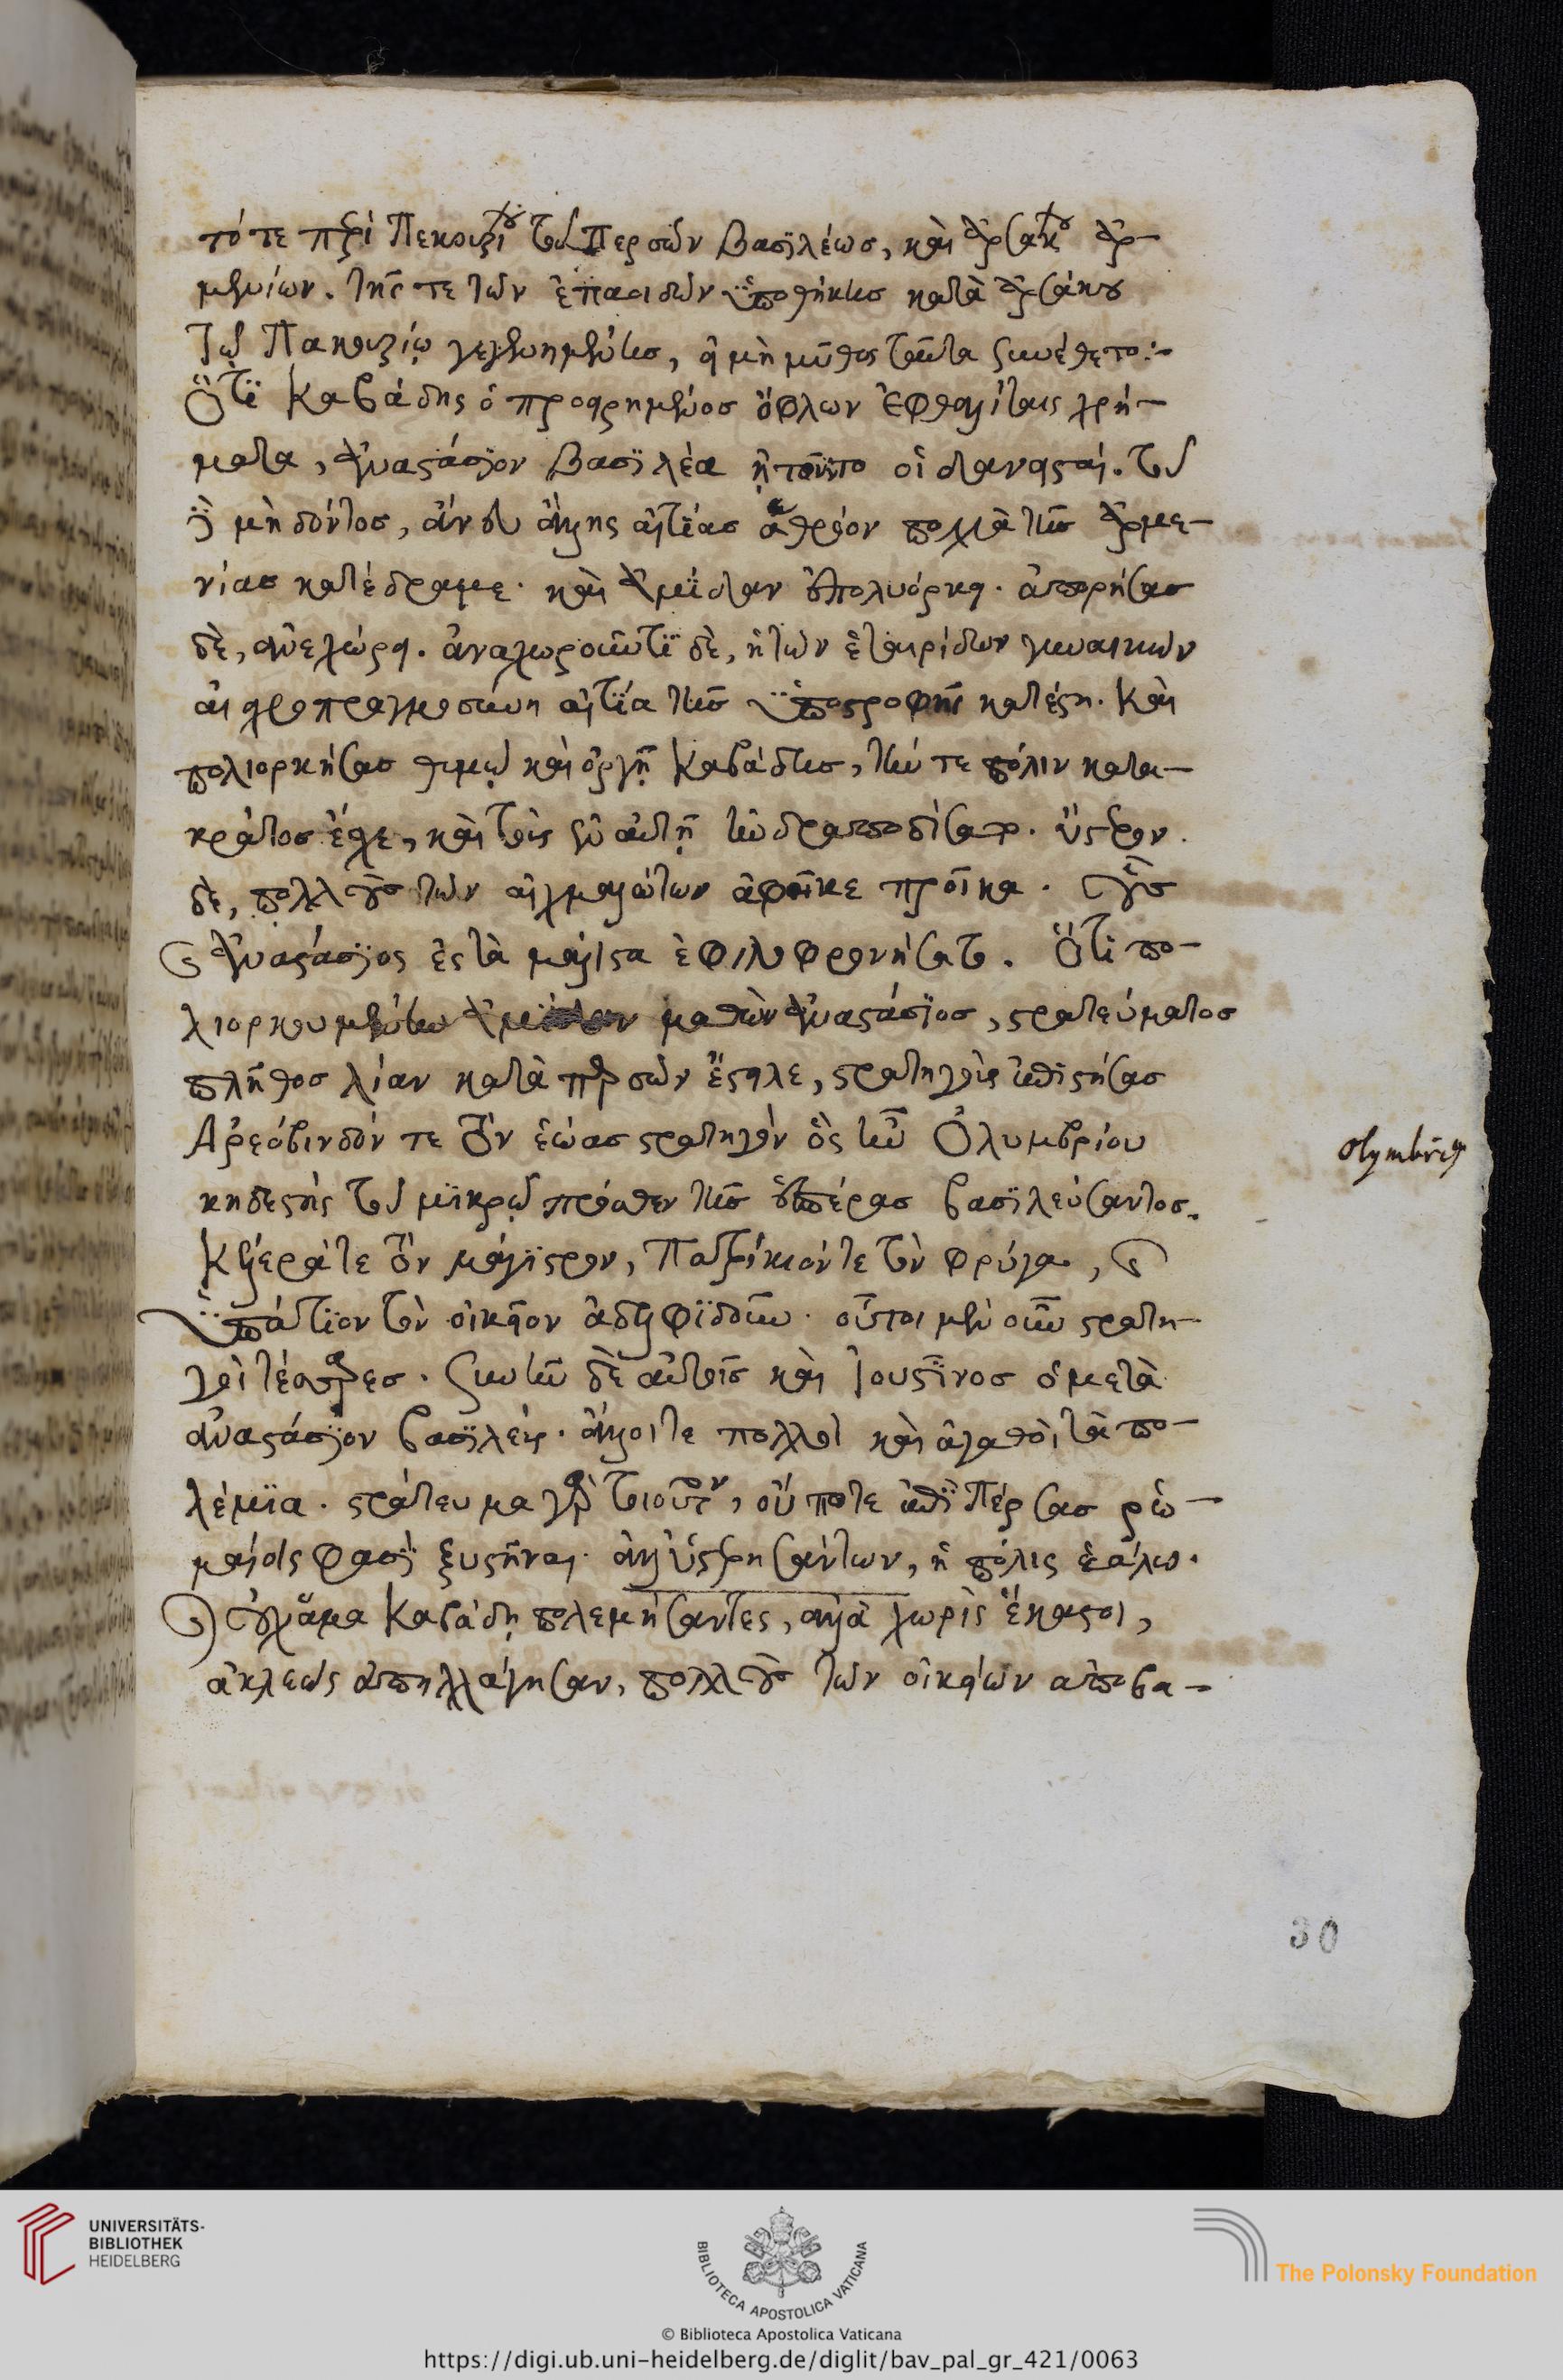 τότε περὶ Πεκουζίου τοῦ Περσῶν βασιλέως, καὶ Ἀρσάκου Ἀρ-
μενίων. τῆς τε τῶν ἐπαοιδῶν ὑποθήκης κατὰ Ἀρσάκου
τῷ Πακουζίῳ γεγενημένης, εἰ μὴ μῦθος ταῦτα συνέθετο:-
Ὅτι Καβάδης ὁ προειρημένος ὄφλων Ἐφθαλίταις χρή-
ματα, Ἀναστάσιον βασιλέα ᾐτεῖτο οἱ δανεῖσαι. τοῦ
δὲ μὴ δόντος, ἄνευ ἄλλης αἰτίας ἀθρόον πολλὰ τῆς Ἀρμε-
νίας κατέδραμε. καὶ Ἀμίδαν ἐπολυόρκει. ἀπορήσας
δὲ, ἀνεχώρει. ἀναχωροῦντι δὲ, ἡ τῶν ἑταιρίδων γυναικῶν
αἰσχροπραγμοσύνη αἰτία τῆς ὑποστροφῆς κατέστη. καὶ
πολιορκήσας θυμῷ καὶ ὀργῇ Καβάδης, τήν τε πόλιν κατα-
κράτος εἷλε, καὶ τοὺς ἐν αὐτῇ ἠνδραποδίσατο. ὕστερον
δὲ, πολλοὺς τῶν αἰχμαλώτων ἀφῆκε προῖκα. οὓς
καὶ Ἀναστάσιος ἐς τὰ μάλιστα ἐφιλοφρονήσατο. Ὅτι πο-
λιορκουμένην Ἀμίδαν μαθὼν Ἀναστάσιος, στρατεύματος
πλῆθος λίαν κατὰ Περσῶν ἔστειλε, στρατηγοὺς ἐπιστήσας
Ἀρεόβινδόν τε τὸν ἑώας στρατηγὸν ὃς ἦν Ὀλυμβρίου
κηδεστὴς τοῦ μικρῷ πρόσθεν τῆς ἑσπέρας βασιλεύσαντος.
Κελέρά τε τὸν μάγιστρον, Πατρίκιόν τε τὸν Φρύγα, καὶ
Ὑπάτιον τὸν οἰκεῖον ἀδελφιδοῦν. οὗτοι μὲν οὖν στρατη-
γοὶ τέσσαρες. συνῆν δὲ αὐτοῖς καὶ Ἰουστῖνος ὁ μετὰ
Ἀναστάσιον βασιλεύς. ἄλλοι τε πολλοὶ καὶ ἀγαθοὶ τὰ πο-
λέμια. στράτευμα γὰρ τοιοῦτον, οὔποτε ἐπὶ Πέρσας Ῥω-
μαίοις φασὶ ξυστῆναι. ἀλλ' ὑστερησάντων, ἡ πόλις ἑάλω.
οὐχ ἅμα Καβάδῃ πολεμήσαντες, ἀλλὰ χωρὶς ἕκαστοι,
ἀκλεῶς ἀπηλλάγησαν, πολλοὺς τῶν οἰκείων ἀποβα-
Olymbrig
30
UNIVERSITÄTS-
BIBLIOTHEK
HEIDELBERG
BIBLIOTECA APOSTOLICA VATICANA
The Polonsky Foundation
© Biblioteca Apostolica Vaticana
https://digi.ub.uni-heidelberg.de/diglit/bav_pal_gr_421/0063